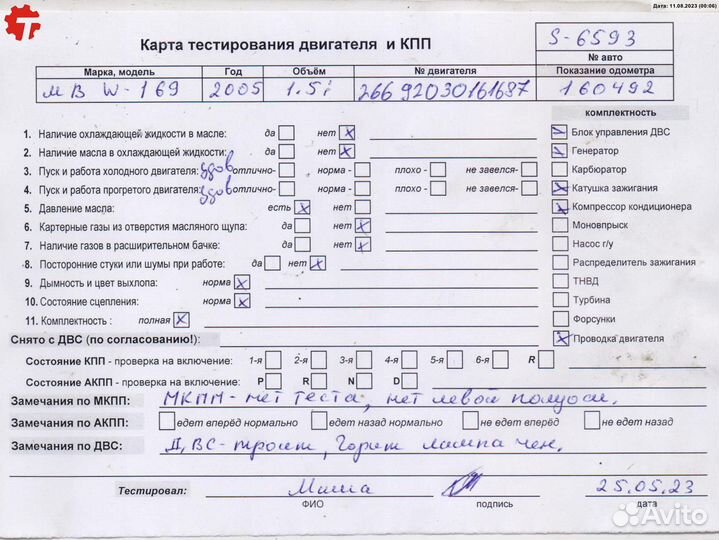 Дата: 11.08.2023 (00:06)
Карта тестирования двигателя и КПП
S-6593
№ авто
Марка, модель Год Объём № двигателя Показание одометра
МВ W-169 2005 1.5i 26692030161687 160492
комплектность
1. Наличие охлаждающей жидкости в масле: да нет
Блок управления ДВС
2. Наличие масла в охлаждающей жидкости: да нет
Генератор
3. Пуск и работа холодного двигателя: удов отлично- норма - плохо - не завелся-
Карбюратор
4. Пуск и работа прогретого двигателя: удов отлично- норма - плохо - не завелся-
Катушка зажигания
5. Давление масла: есть нет
Компрессор кондиционера
6. Картерные газы из отверстия масляного щупа: да нет
Моновпрыск
7. Наличие газов в расширительном бачке: да нет
Насос г/у
8. Посторонние стуки или шумы при работе: да нет
Распределитель зажигания
9. Дымность и цвет выхлопа: норма
ТНВД
10. Состояние сцепления: норма
Турбина
11. Комплектность : полная
Форсунки
Снято с ДВС (по согласованию!):
Проводка двигателя
Состояние КПП - проверка на включение: 1-я 2-я 3-я 4-я 5-я 6-я R
Состояние АКПП - проверка на включение: P R N D
Замечания по МКПП: МКПП-нет теста, нет левой полуоси.
Замечания по АКПП: едет вперёд нормально едет назад нормально не едет вперёд не едет назад
Замечания по ДВС: Д,ВС-троит, Горит лампа чек.
Тестировал: Миша 25.05.23
ФИО подпись дата
Avito